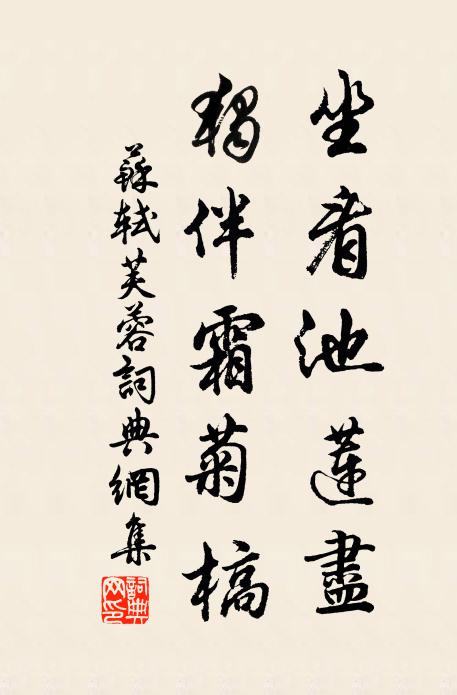 坐看池蓮盡
獨伴霜菊槁
蘇軾芙蓉詞典網集
詞典网印